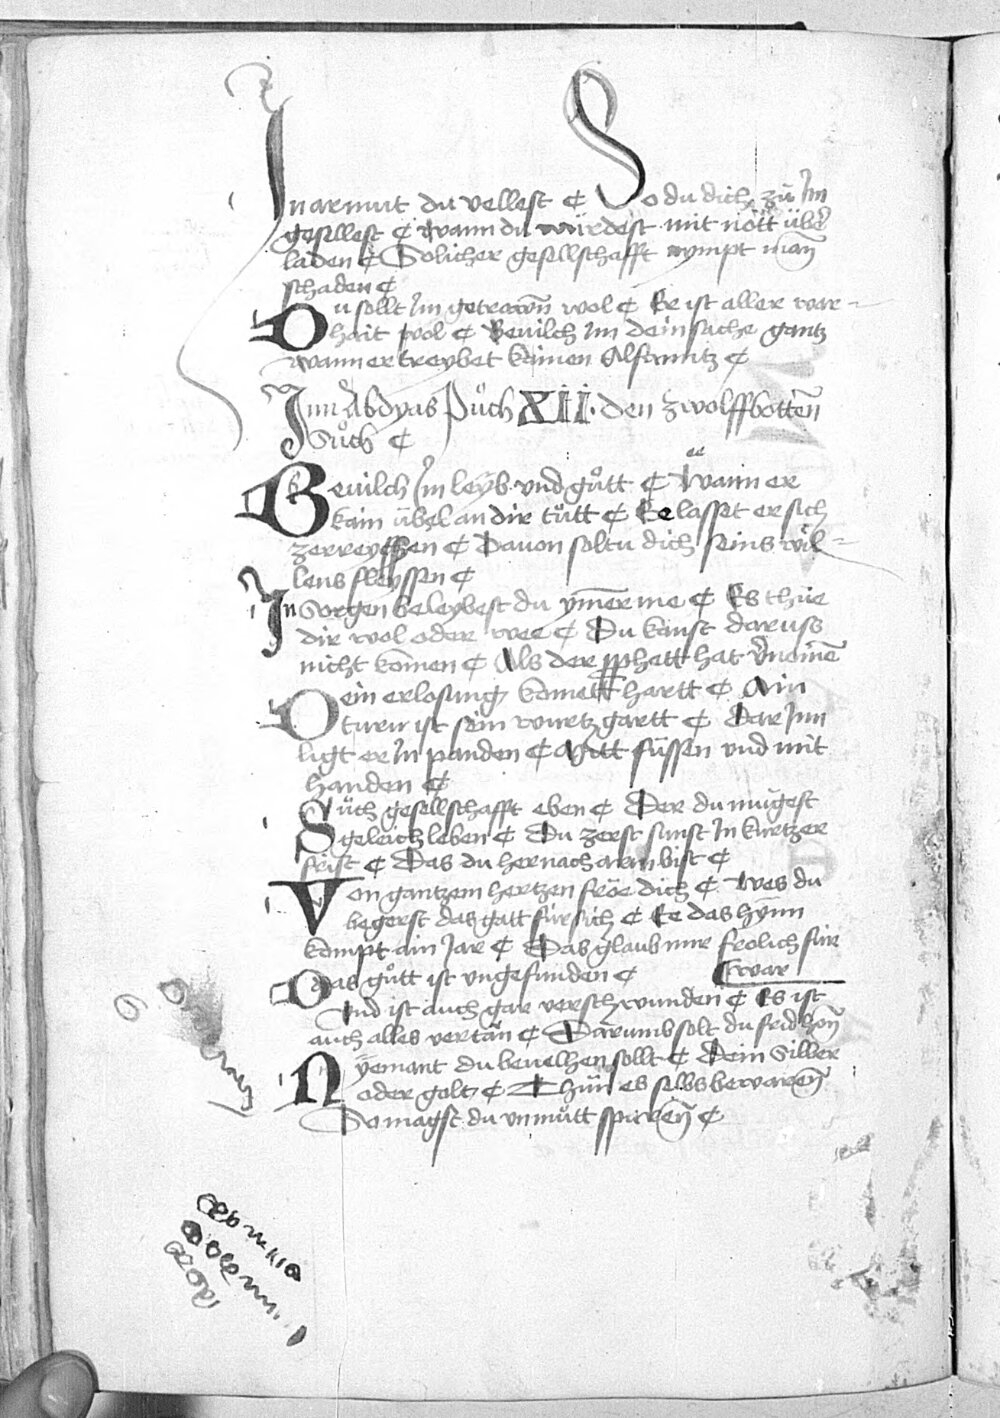 In armut du vellest ¢ So du dich zů Im
gesellest ¢ Wann du würdest mit nott über
laden ¢ Solicher gesellschafft nympt man̄
schaden ¢
Du sollt Im getrawn̄ wol ¢ Er ist aller war-
hait vol ¢ Beuilch Im dein sache gantz
wann er treybet kainen Alfanntz ¢
Inn Abdyas Půch XII. den zwolffbotten̄
Sůch ¢
Beuilch Im leyb vnd gůtt ¢ Wann er
kain übel an dir tůtt ¢ Ee lasset er sich
zerreyssen ¢ Dauon soltu dich seins wil-
lens fleyssen ¢
In Sorgen beleybest du ym̄er me ¢ Es thüe
dir wol oder wee ¢ Du kanst daruss
nicht komen ¢ Als der pphett hat v̄nomen̄
Dein erlosung komett hartt ¢ Ain
turn ist sein wurtzgartt ¢ Dar Inn
ligt er In panden ¢ Mitt füssen vnd mit
handen ¢
Sůch gesellschafft eben ¢ Der du mügest
geleich leben ¢ Du zerst sunst In kurtzer
frist ¢ Das du hernach arm bist ¢
Von gantzem hertzen fröe dich ¢ Wes du
begerst das gatt für sich ¢ Ee das hynn
kompt ain Jar ¢ Das glaub mir frolich für
war
Das gůtt ist vngefunden ¢
Vnd ist auch gar verschwunden ¢ Es ist
auch alles vertan ¢ Darumb solt du frid hon̄
Nyemant du beuelhen sollt ¢ Dein Silber
oder golt ¢ Thün es selbs bewaren̄
So magst du vnmůtt sparen̄ ¢